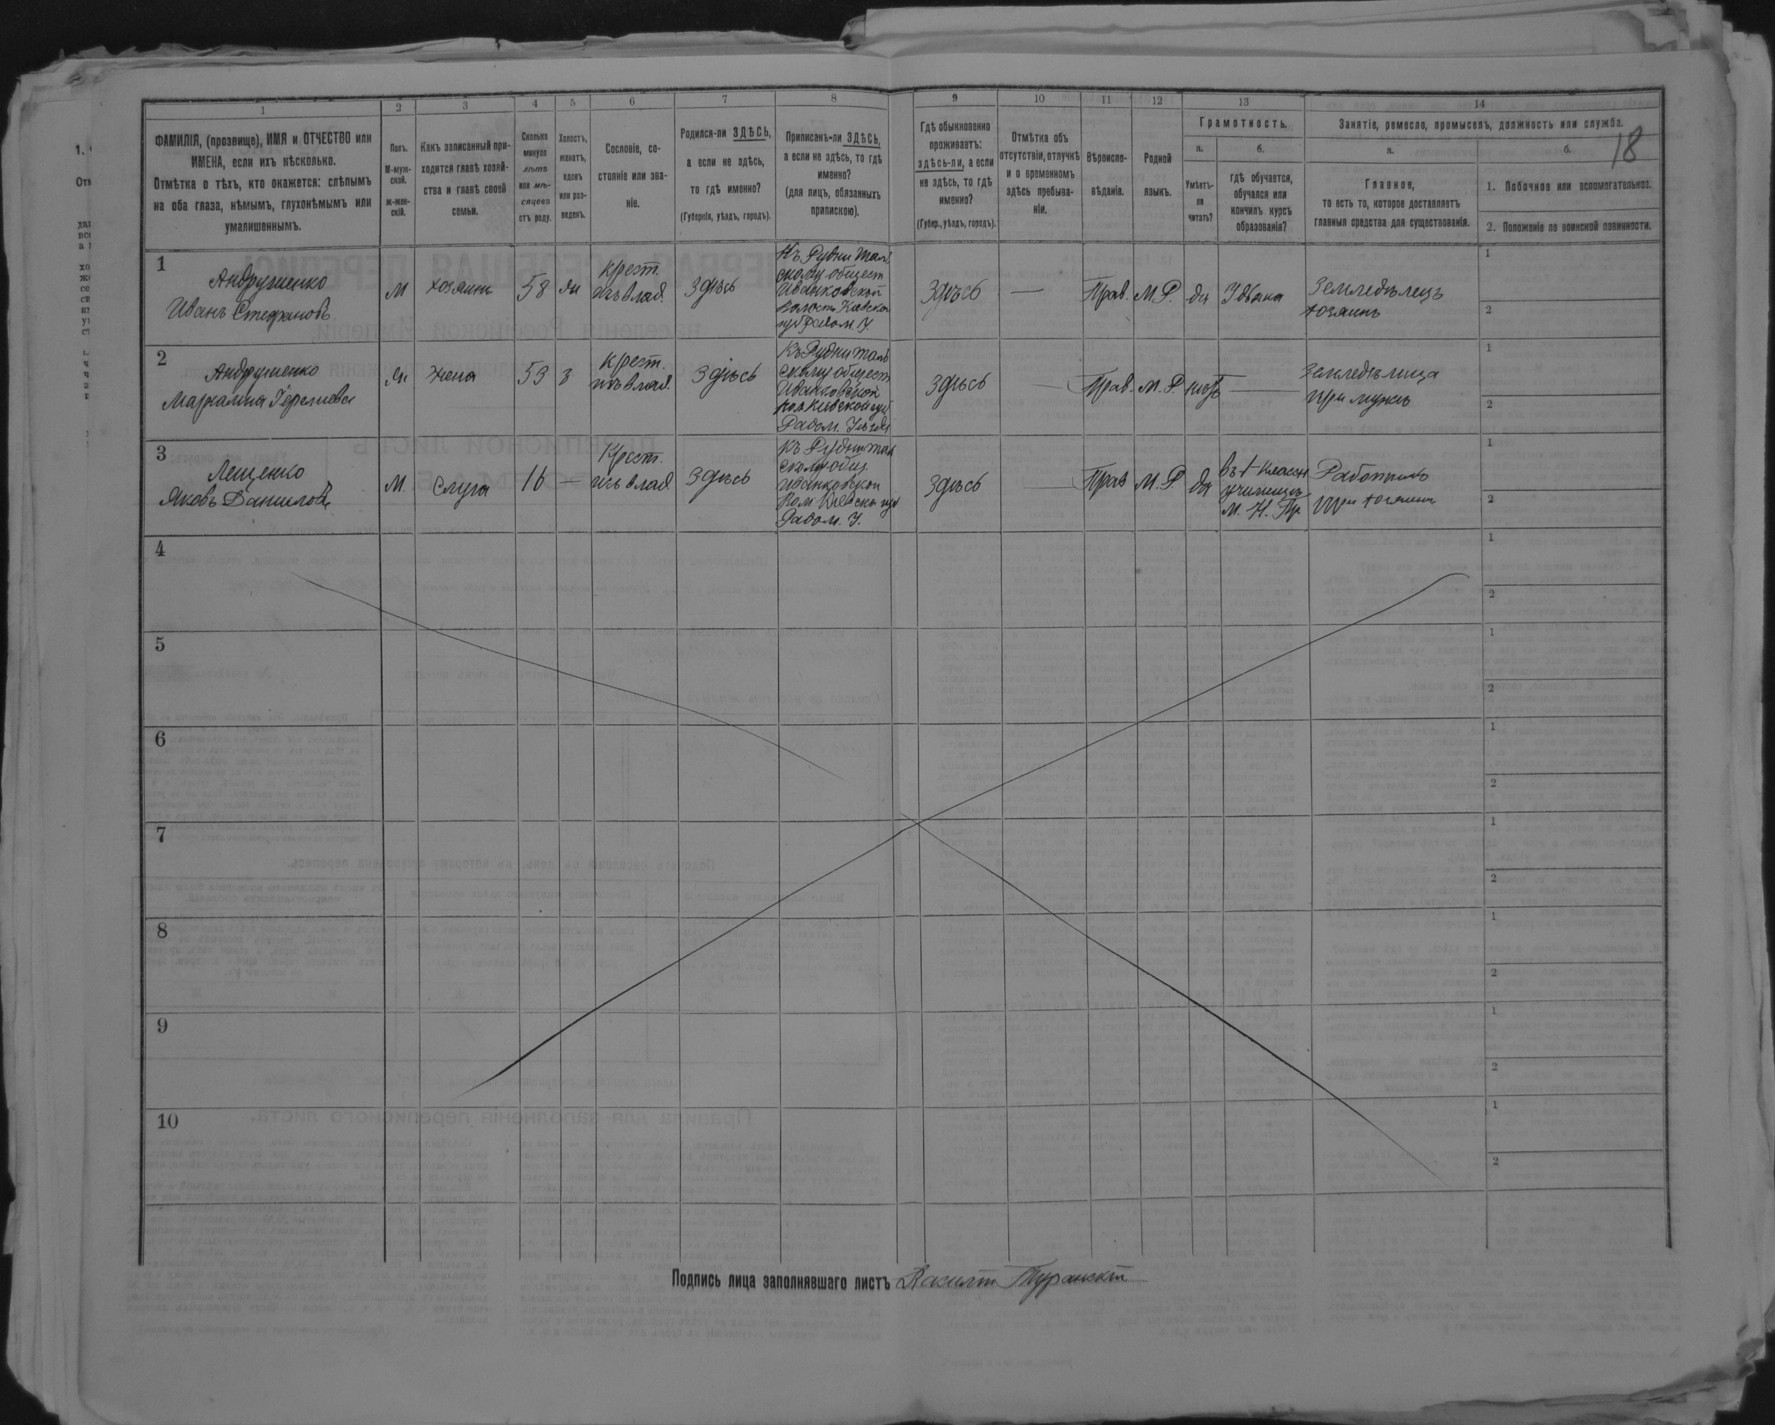 18
1 2 3 4 5 6 7 8 9 10 11 12 13 14
ФАМИЛІЯ, (прозвище), ИМЯ и ОТЧЕСТВО или
ИМЕНА, если ихъ нѣсколько.
Отмѣтка о тѣхъ, кто окажется: слѣпымъ
на оба глаза, нѣмымъ, глухонѣмымъ или
умалишеннымъ.
Полъ.
М-муж-
ской.
ж-жен-
скій.
Какъ записанный при-
ходится главѣ хозяй-
ства и главѣ своей
семьи.
Сколько
минуло
лѣтъ
или мѣ-
сяцевъ
отъ роду.
Холостъ,
женатъ,
вдовъ
или раз-
веденъ.
Сословіе, со-
стояніе или зва-
ніе.
Родился-ли ЗДѢСЬ,
а если не здѣсь,
то гдѣ именно?
(Губернія, уѣздъ, городъ).
Приписанъ-ли ЗДѢСЬ,
а если не здѣсь, то гдѣ
именно?
(для лицъ, обязанныхъ
припискою).
Гдѣ обыкновенно
проживаетъ:
здѣсь-ли, а если
не здѣсь, то гдѣ
именно?
(Губер., уѣздъ, городъ).
Отмѣтка объ
отсутствіи, отлучкѣ
и о временномъ
здѣсь пребыва-
ніи.
Вѣроиспо-
вѣданіе.
Родной
языкъ.
Грамотность.
а.
Умѣетъ-
ли
читать?
б.
гдѣ обучается,
обучался или
кончилъ курсъ
образованія?
Занятіе, ремесло, промыселъ, должность или служба.
а.
Главное,
то есть то, которое доставляетъ
главныя средства для существованія.
б.
1. Побочное или вспомогательное.
2. Положеніе по воинской повинности.
1
Андрушенко
Иванъ Стефановъ
М
хозяинъ
58
жн
крест.
изъ влад.
здѣсь
Къ Рудни Тал
скому общест
Иванковской
Волости Кіевской
губ Радом. У.
здѣсь
—
Прав.
М. Р.
да
У дьяка
Земледѣлецъ
хозяинъ
1
2
2
Андрушенко
ж
жена
53
з
крест.
изъ влад.
здѣсь
Къ Рудни Тал
скому общест
Иванковской
вол Кіевской губ
Радом. Уѣзда
здѣсь
—
Прав.
М. Р.
нѣтъ
—
Земледѣлица
при мужѣ
1
2
3
Лещенко
Яковъ Даниловъ
М
слуга
16
—
Крест.
изъ влад
здѣсь
Къ Рудни Тал
скому общ.
Иванковской
Вол. Кіевск. губ
Радом. У.
здѣсь
—
Прав
М. Р.
да
въ 1 классн
училищѣ
М. Н. Пр
Работникъ
при хозяинѣ
1
2
4
1
2
5
1
2
6
1
2
7
1
2
8
1
2
9
1
2
10
1
2
Подпись лица заполнявшаго листъ